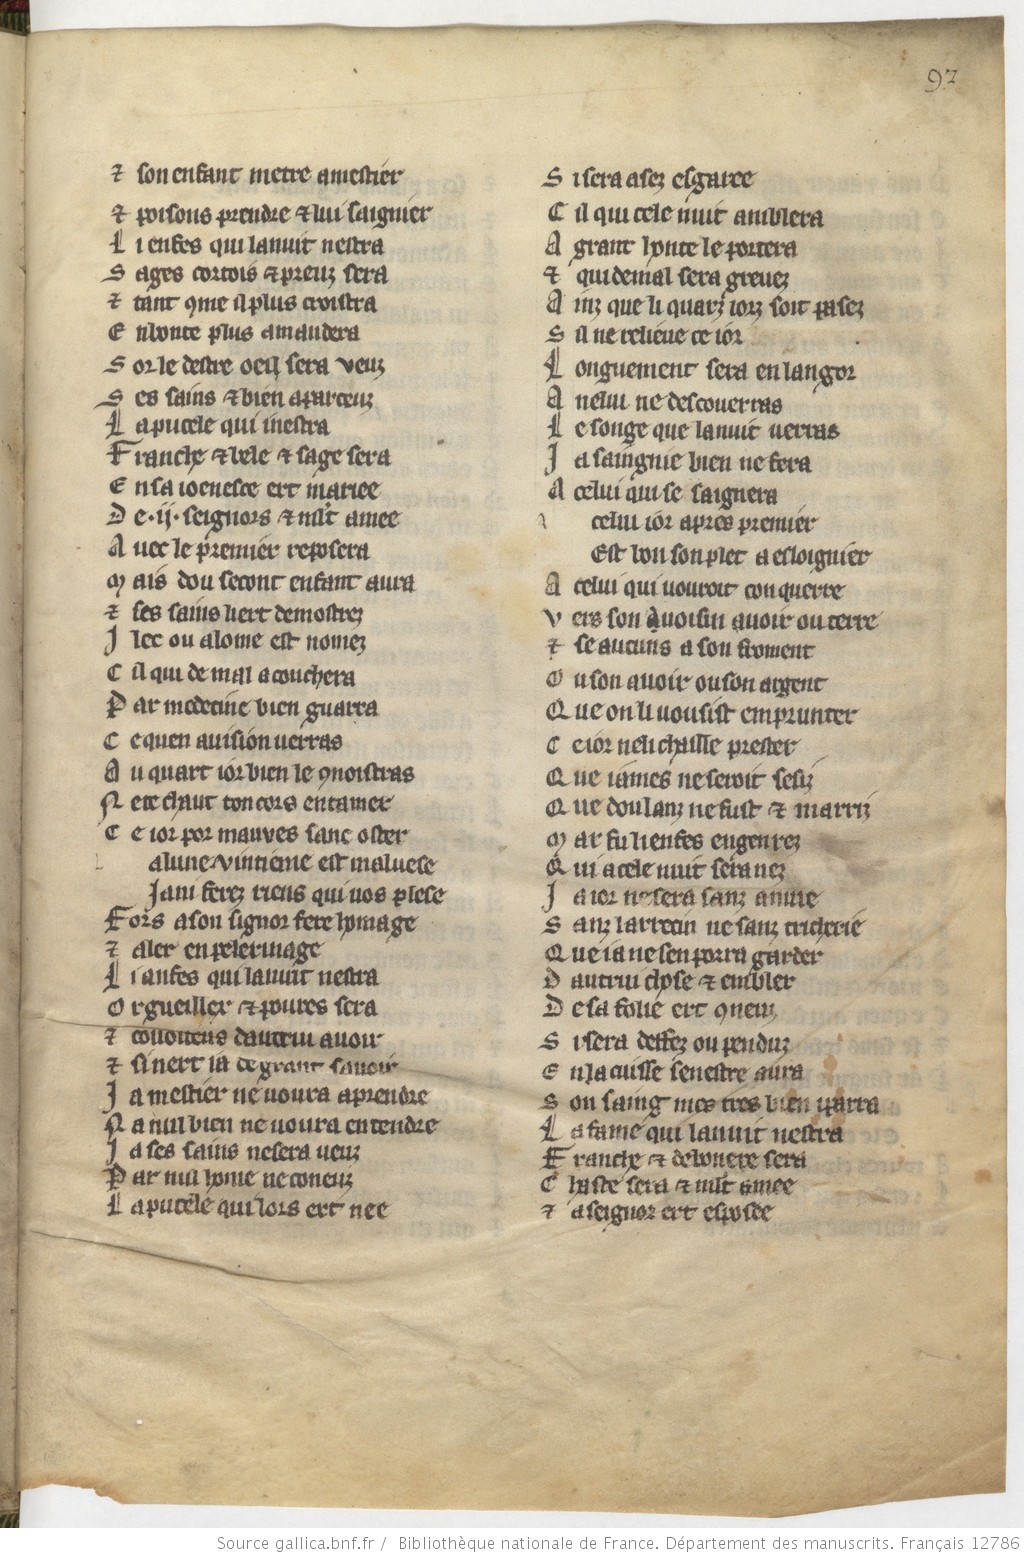 97
⁊ son enfant metre amestier
⁊ poisons prendre ⁊ lui saignier
L i enfes qui lanuit nestra
S ages cortois ⁊ preuz sera
⁊ tant ꝯme il plus croistra
E n bonte plus amandera
S or le destre oeil sera veuz
S es sains ⁊ bien aparceuz
L a pucele qui inestra
F ranche ⁊ bele ⁊ sage sera
E n sa ioenesce ert mariee
D e .ij. seignors ⁊ mlt amee
A uec le premier reposera
M ais dou secont enfant aura
⁊ ses sains liert demostrez
I lec ou alome est nomez
C il qui de mal acouchera
P ar medecine bien guarra
C e quen auision uerras
A u quart ior bien le ꝯnoistras
N ete chaut ton cors entamer
C e ior por mauves sanc oster
a lune vintieme est maluese
Jani ferez riens qui uos plese
F ors a son signor fere homage
⁊ aler en pelerinage
L i anfes qui lanuit nestra
O rgueilleꝛ ⁊ poures sera
⁊ couoiteus dautrui auoir
⁊ si nert ia de grant sauoir
J a mestier ne uoura aprendre
N a nul bien ne uoura entendre
J a ses sains nesera ueuz
P ar nul home ne coneuz
L a pucele qui lors ert nee
S i sera asez esgaree
C il qui cele nuit amblera
A grant honte le portera
⁊ qui de mal sera greuez
A inz que li quarz iorz soit pasez
S il ne relieue ce ior
L onguement sera en langor
A nelui ne descouerras
L e songe que lanuit uerras
J a saingnie bien ne fera
A celui qui se saignera
celui ior apres premier
Est bon son plet a esloignier
A celui qui uouroit conquerre
V ers son auoisin auoir ou terre
⁊ se aucuns a son froment
O u son auoir ou son argent
Q ue on li uousist emprunter
C e ior neli chaille prester
Q ue iames ne seroit sesiz
Q ue dou lanz ne fust ⁊ marriz
M ar fu li enfes engenrez
Q ui a cele nuit sera nez
J a ior nesera sanz anuie
S anz larrecin ne sanz tricherie
Q ue ia ne sen porra garder
D autrui chose ⁊ embler
D e sa folie ert ꝯneuz
S i sera deffez ou penduz
E n la cuisse senestre aura
S on saing mes tres bien iparra
L a fame qui lanuit nestra
F ranche ⁊ debonere sera
C haste sera ⁊ mlt amee
⁊ a seignor ert esposee
Source gallica.bnf.fr / Bibliothèque nationale de France. Département des manuscrits. Français 12786